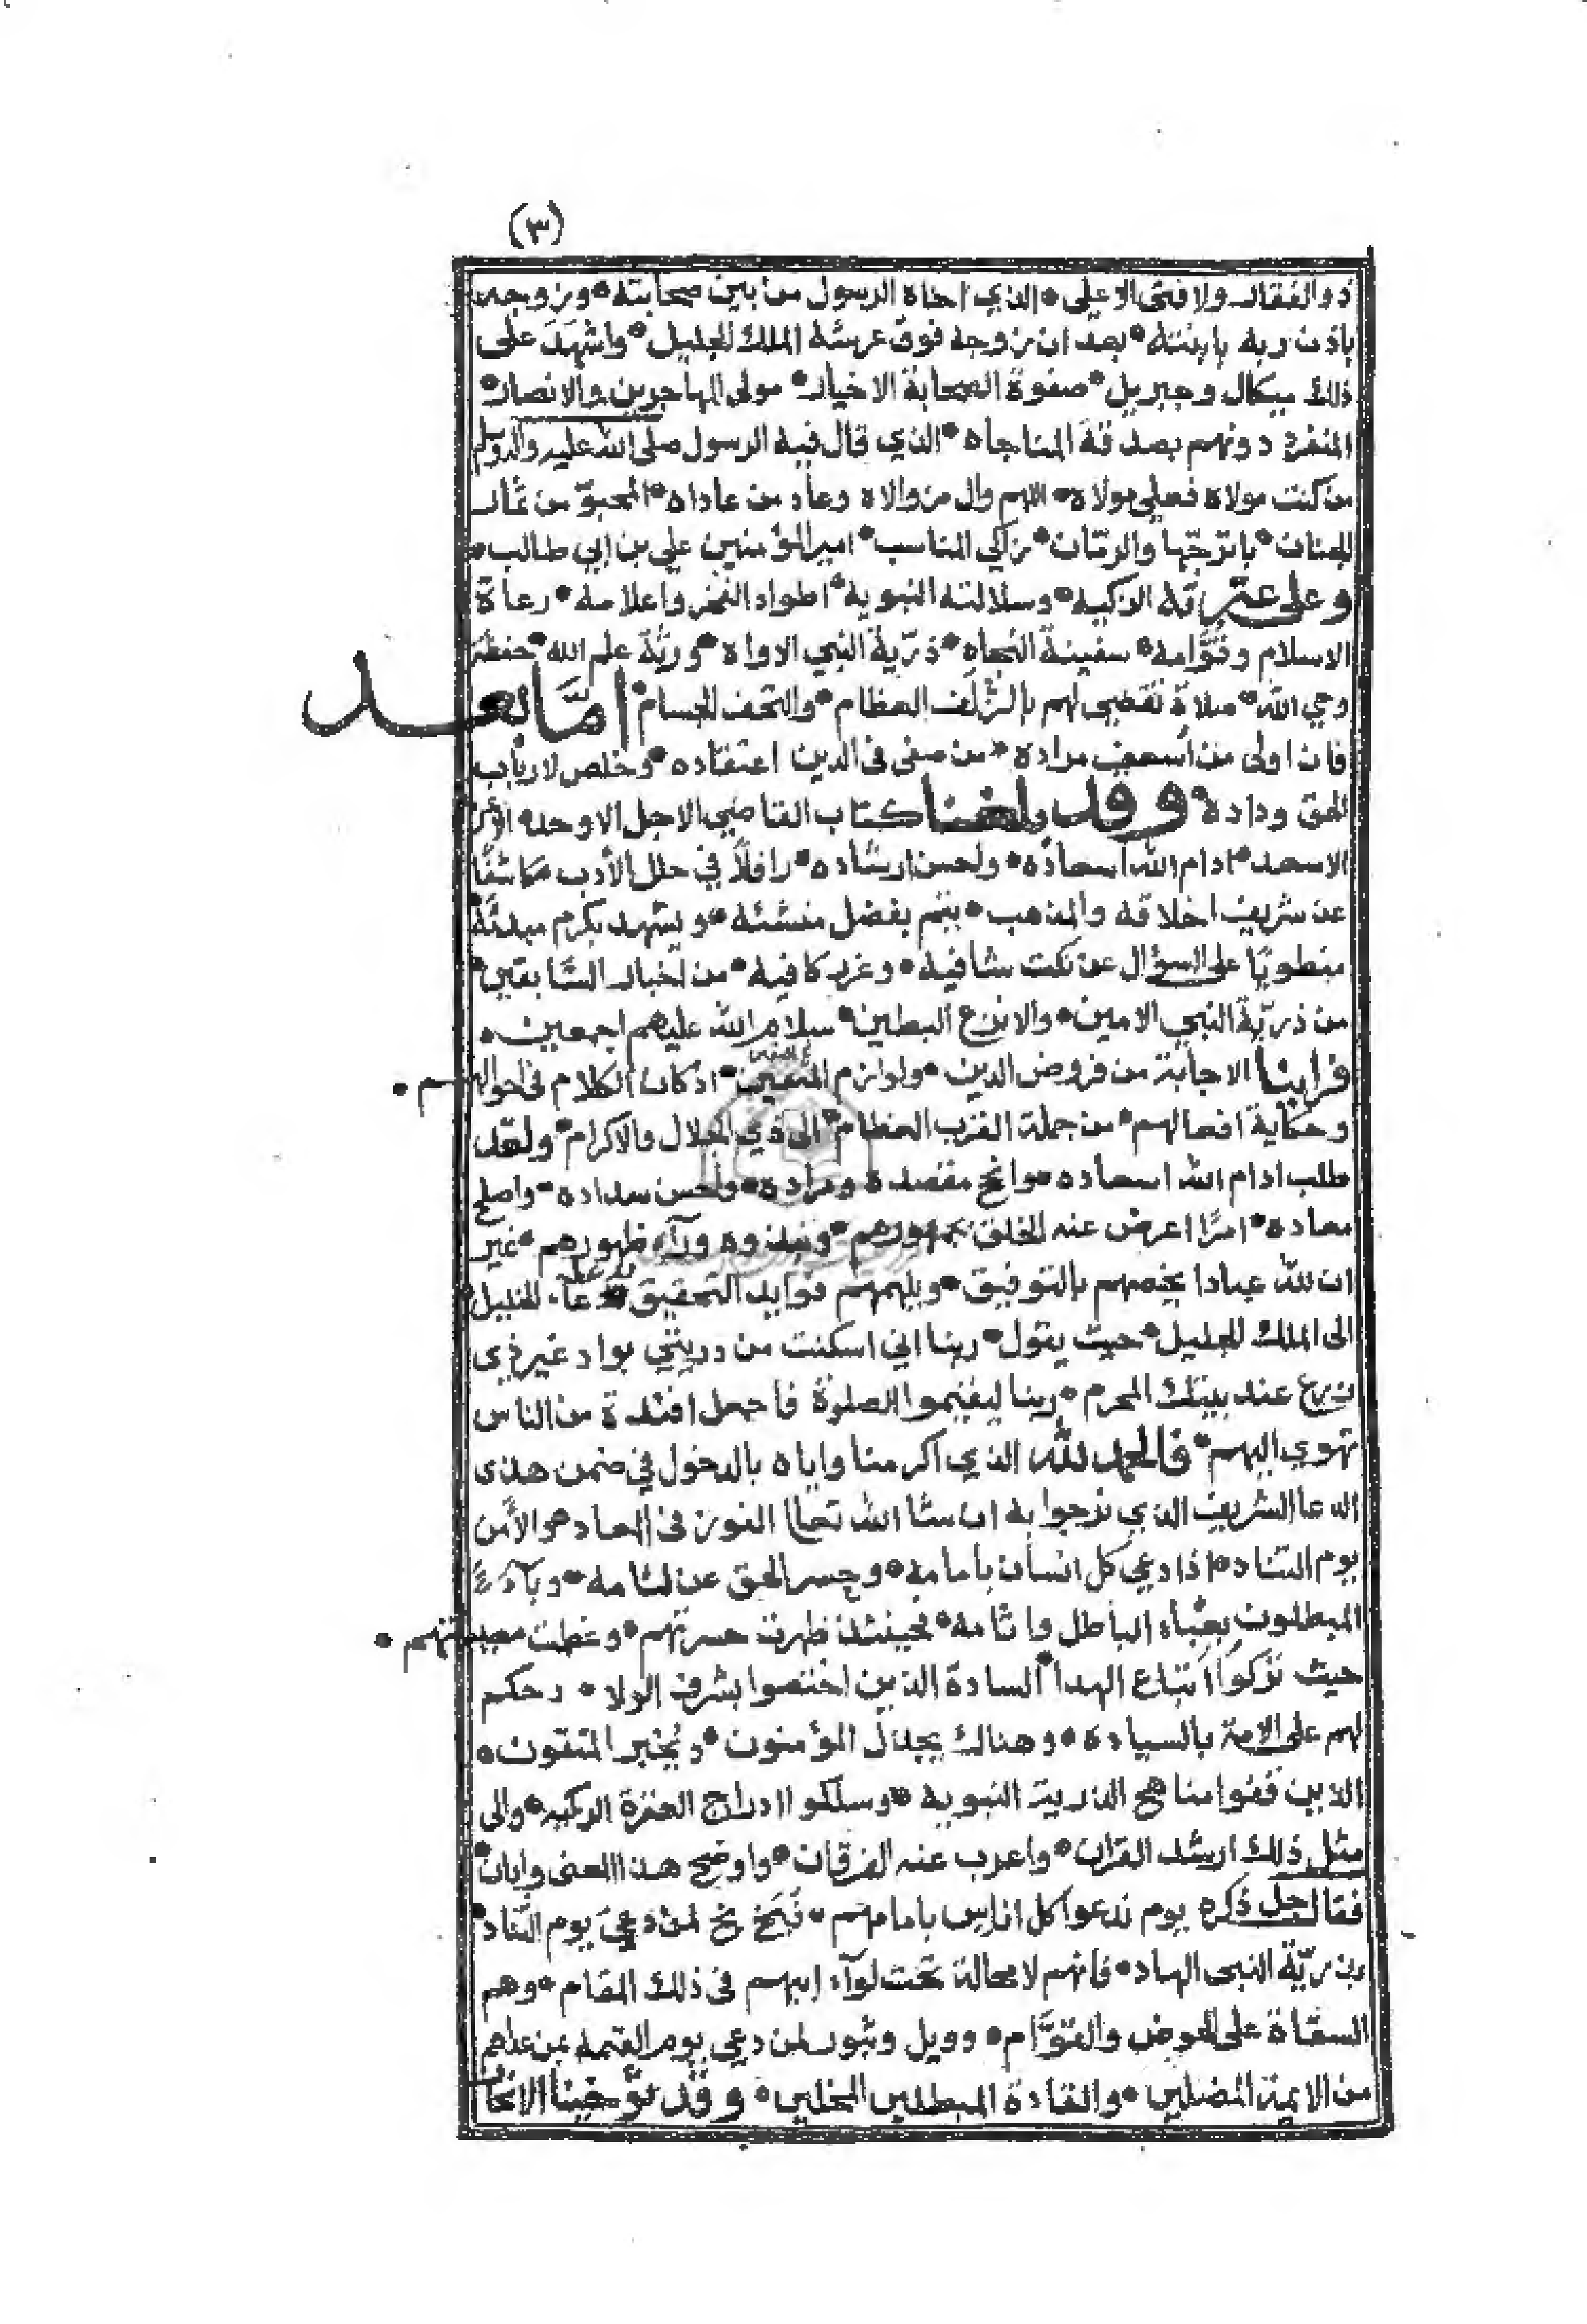 (٣)
ذو الفقار ولا فتى الا علي • الذي اخاه الرسول من بين صحابته • وزوجه
باذن ربه بابنته • بعد ان زوجه فوق عرشه الملك الجليل • واشهد على
ذلك ميكال وجبريل • صفوة الصحابة الاخيار • مولى المهاجرين والانصار •
المنفرد دونهم بصدقة المناجاه • الذي قال فيه الرسول صلى الله عليه واله وسلم
من كنت مولاه فعلي مولاه • اللهم وال من والاه وعاد من عاداه • المحبوّ من ثمار
الجنان • باترجّها والرمّان • زاكي المناسب • امير المؤمنين علي بن ابي طالب •
وعلى عترته الزكيه • وسلالته النبوية • اطواد الفخر واعلامه • رعاة
الاسلام وقوّامه • سفينة النجاه • ذرّية النبي الاواه • ورثة علم الله • حفظة
وحي الله • صلاة تقضي لهم بالزُلَف العظام • والتحف الجسام • امَّا بعد
فان اولى من أسعف مراده • من صفى فى الدين اعتقاده • وخلص لارباب
الحق وداده • وقد ولغنا كتاب القاضي الاجل الاوحد • الاعز
الاسعد • ادام الله اسعاده • ولحسن ارشاده • رافلاً في حلل الأدب كاشفًا
عن شريف اخلاقه والمذهب • ينم بفضل منشئه • ويشهد بكرم مبدئه •
منطويًا على السؤال عن نكت شافيه • وغرر كافيه • من اخبار السّابقين •
من ذريّة النبي الامين • والانزع البطين • سلام الله عليهم اجمعين •
فراينا الاجابة من فروض الدين • ولوازم المتعين • اذ كان الكلام فى احوالهم •
وحكاية افعالهم • من جملة القرب العظام • الى ذي الجلال والاكرام • ولقد
طلب ادام الله اسعاده • وانجح مقصده ومراده • واحسن سداده • واصلح
معاده • امرًا اعرض عنه الخلق بجمهورهم • ونبذوه ورآء ظهورهم • غير
ان لله عبادا يخصهم بالتوفيق • ويلهمهم فوايد التحقيق • دعاء الخليل •
الى الملك الجليل • حيث يقول • ربنا اني اسكنت من ذريتي بواد غير ذي
زرع عند بيتك المحرم • ربنا ليقيموا الصلوة فاجعل افئدة من الناس
تهوي اليهم • فالحمد لله الذي اكرمنا واياه بالدخول في ضمن هذى
الدعا الشريف الذي نرجوا به ان شا الله تعالى الفوز فى المعاد • والأمن
يوم التناد • اذا دعي كل انسان بامامه • وحسر الحق عن لثامه • وبآء
المبطلون بعبأ الباطل واثامه • فحينئذ ظهرت حسرتهم • وعظمت مصيبتهم •
حيث تركوا اتباع الهدا السادة الذين اختصوا بشرف الولا • وحكم
لهم على الامة بالسياده • وهناك يجذل المؤمنون • ويُخبر المتقون •
الذين قفوا مناهج الذرية النبويه • وسلكوا ادراج العترة الزكيه • والى
مثل ذلك ارشد القران • واعرب عنه الفرقان • واوضح هذا المعنى وابان •
فقال جل ذكره يوم ندعوا كل اناس بامامهم • فبخ بخ لمن دعي يوم التناد •
بذريّة النبى الهاد • فانهم لا محالة تحت لوآء ابيهم فى ذلك المقام • وهم
السقاة على الحوض والقوَّام • وويل وثبور لمن دعي يوم القيمه بمن عداهم
من الايمة المضلين • والقادة المبطلين المخلين • وقد توخينا الايجاز